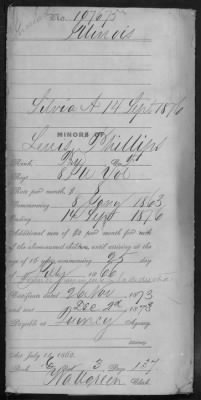 No. 197675
Illinois
Silvia A 14 Sept 1876
MINORS OF
Lewis Phillips
Rank, Co.
Reg. 8 Ill Vol
Rate per month, $ 8
Commencing 8 1863
Ending 14 Sept 1876
Additional sum of $2 per month for each
of the abovenamed children, until arriving at the
age of 16 years, commencing 25 day
of July 1866
Certificate dated 26 Nov 1873
and sent 2d Dec 1873
Payable at Quincy Agency
Act July 14, 1862.
Book E Vol. 3 Page 137
Clerk